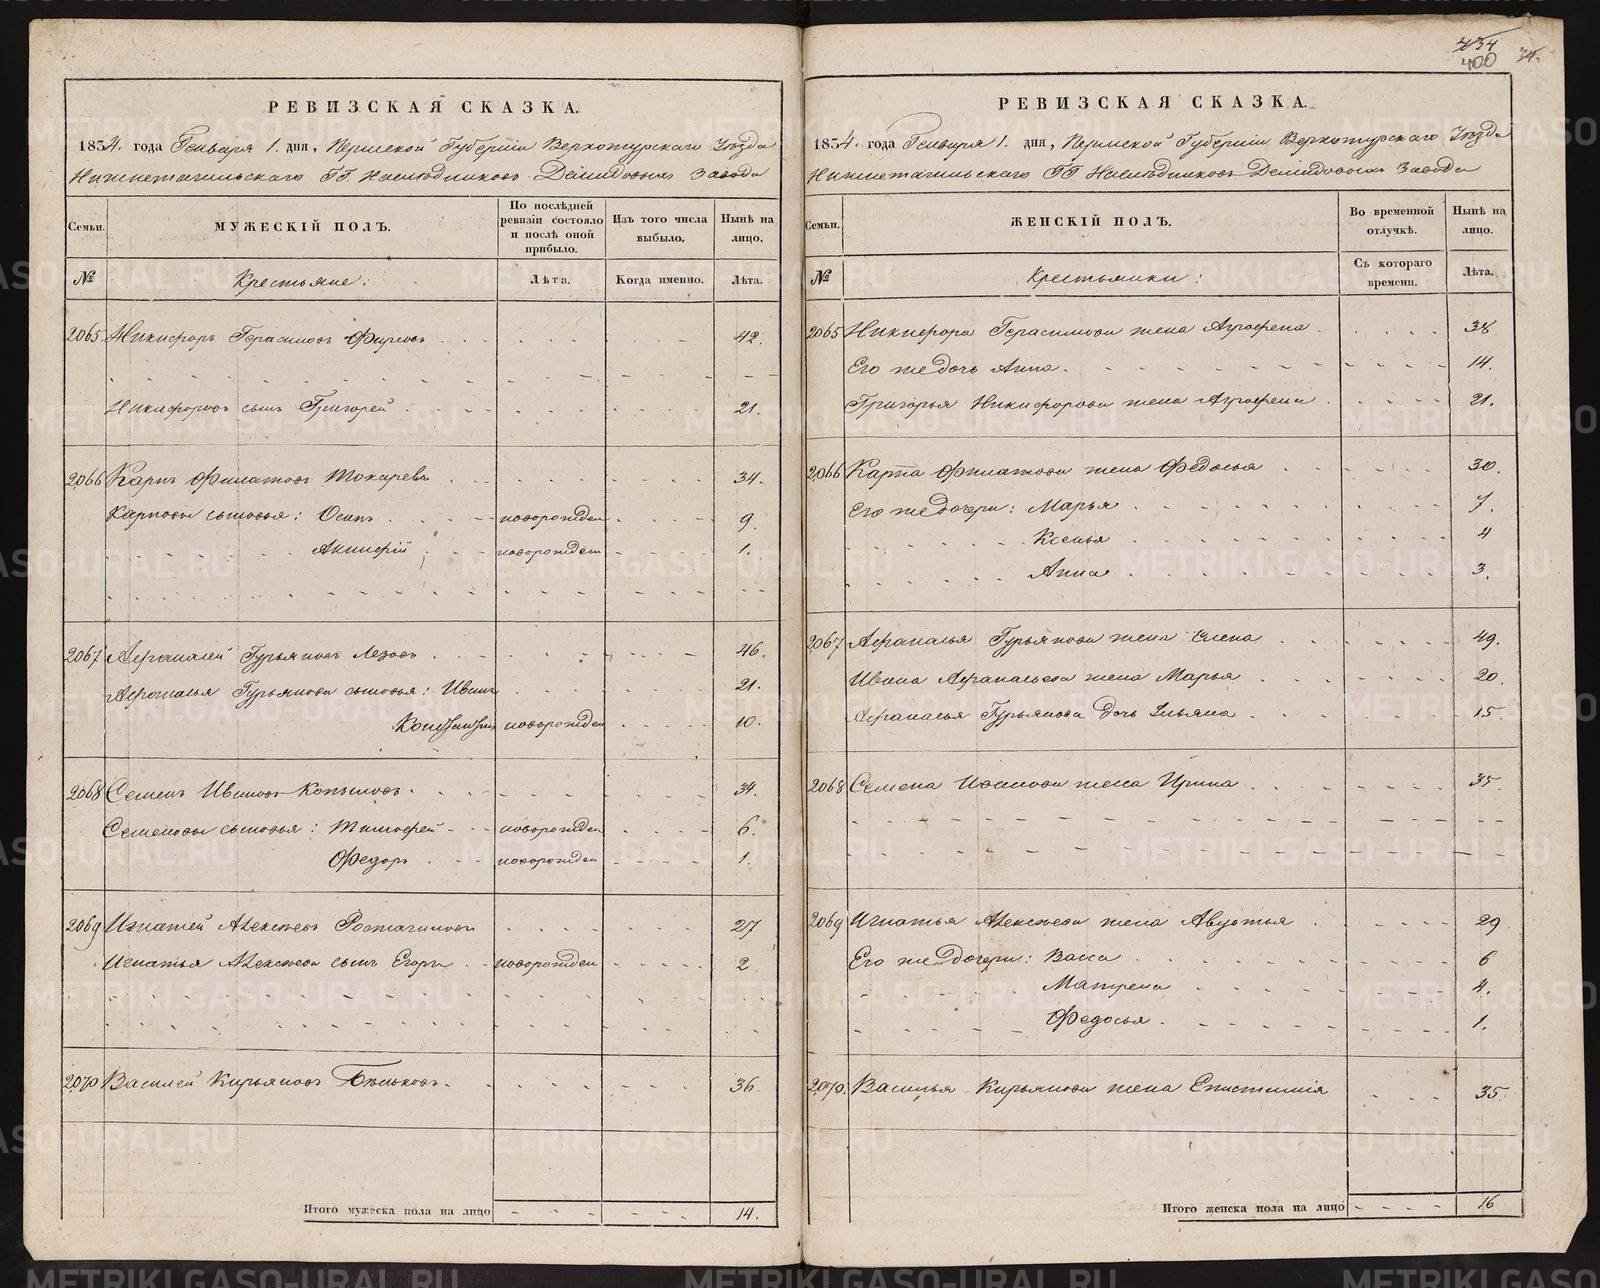 434
400
34.
РЕВИЗСКАЯ СКАЗКА.
1834. года Генваря 1. дня, Пермской Губерніи Верхотурскаго Уѣзда
Нижнетагильскаго ГГ Наслѣдниковъ Демидовыхъ Завода
Семьи.
МУЖЕСКІЙ ПОЛЪ.
По послѣдней ревизіи состояло и послѣ оной прибыло.
Изъ того числа выбыло.
Нынѣ на лицо.
№
Крестьяне:
Лѣта.
Когда именно.
Лѣта.
2065. Никифоръ Герасимовъ Фирсовъ 42.
Никифоровъ сынъ Григорей 21.
2066 Карпъ Филатовъ Токаревъ 34.
Карповы сыновья: Осипъ новорожден 9.
Акинфій новорожден 1.
2067 Афонасей Гурьяновъ Лезовъ 46.
Афонасья Гурьянова сыновья: Иванъ 21.
Констянтинъ новорожден 10.
2068 Семенъ Ивановъ Копыловъ 34.
Семеновы сыновья: Тимофей новорожден 6.
Федоръ новорожден 1.
2069 Игнатей Алексѣевъ Ростагиловъ 27
Игнатья Алексѣева сынъ Егоръ новорожден 2.
2070 Василей Кирьяновъ Бѣльковъ 36.
Итого мужеска пола на лицо 14.
РЕВИЗСКАЯ СКАЗКА.
1834. года Генваря 1. дня, Пермской Губерніи Верхотурскаго Уѣзда
Нижнетагильскаго ГГ Наслѣдниковъ Демидовыхъ Завода
Семьи.
ЖЕНСКІЙ ПОЛЪ.
Во временной отлучкѣ.
Нынѣ на лицо.
№
Крестьянки:
Съ котораго времени.
Лѣта.
2065 Никифора Герасимова жена Агрофена 38.
Его же дочь Анна 14.
Григорья Никифорова жена Агрофена 21.
2066 Карпа Филатова жена Федосья 30.
Его же дочери: Марья 7.
Ксенья 4
Анна 3.
2067 Афанасья Гурьянова жена Елена 49.
Ивана Афанасьева жена Марья 20.
Афанасья Гурьянова дочь Ульяна 15.
2068 Семена Иванова жена Ирина 35
2069 Игнатья Алексѣева жена Авдотья 29.
Его же дочери: Васса 6
Матрена 4.
Федосья 1.
2070. Василья Кирьянова жена Епистимія 35.
Итого женска пола на лицо 16
METRIKI.GASO-URAL.RU